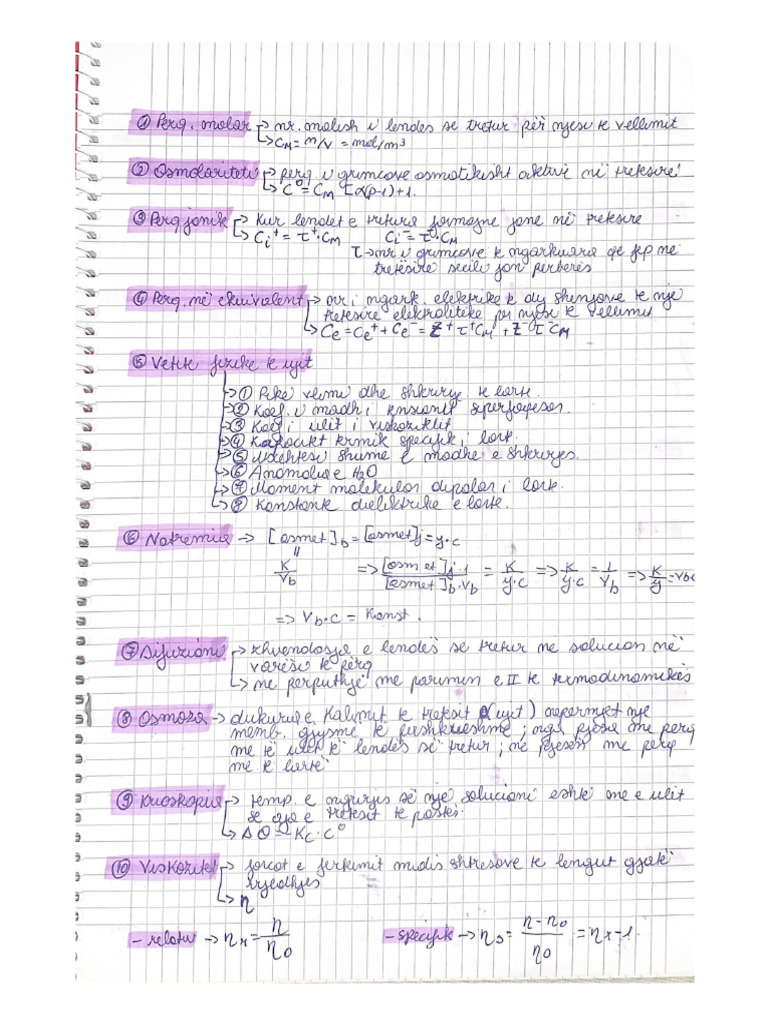 ① Perq. molar → nr. molesh i lendes se tretur për njesi te vellimit
→ CM = n/V = mol/m³
② Osmolariteti → perq i grimcove osmotikisht aktive në tretesirë
→ C⁰ = CM [α(p-1)+1.
③ Perq jonik → Kur lendet e tretura formojne jone në tretesire
→ Ci⁺ = τ⁺·CM Ci⁻ = τ⁻·CM
τ → nr i grimcove te ngarkuara qe jep ne
tretësirë secili jon perberës
④ Perq. në ekuivalent → nr i ngark. elektrike te dy shenjave te nje
tretesire elektrolitike per njesi te vellimit
→ Ce = Ce⁺ + Ce⁻ = Z⁺τ⁺CM + Z⁻τ⁻CM
⑤ Vetite fizike te ujit
→ ① Pike vlimi dhe shkrirje te larte.
→ ② Koef. i madh i tensionit siperfaqesor.
→ ③ Koef i ulët i viskozitetit
→ ④ Kapacitet termik specifik i larte.
→ ⑤ Nxehtesi shume e madhe e shkrirjes.
→ ⑥ Anomalia e H₂O
→ ⑦ Moment molekular dipolar i larte.
→ ⑧ Konstante dielektrike e larte.
⑥ Natremia → [osmet]b = [osmet]j = y·c
K/Vb => [osmet]j·1/[osmet]b·Vb = K/y·c => K/y·c = 1/Vb => K/y = Vb·c
=> Vb·c = Konst.
⑦ Difuzioni → zhvendosja e lendës së tretur ne solucion në
varësi te përq
→ ne perputhje me parimin e II te termodinamikës
⑧ Osmoza → dukuria e kalimit te tretesit (ujit) nepermjet nje
memb. gjysme te pershkueshme; nga pjesa me perq
me të ulet të lendes së tretur; ne pjesen me perq
me te larte
⑨ Krioskopia → temp. e ngrirjes së nje solucioni eshte me e ulet
se ajo e tretesit te paster.
→ Δθ = Kc·C⁰
⑩ Viskoziteti → forcat e ferkimit midis shtresave te lengut gjatë
rrjedhjes
→ η
- relativ → ηr = η/η0 - specifik → ηs = η-η0/η0 = ηr-1.